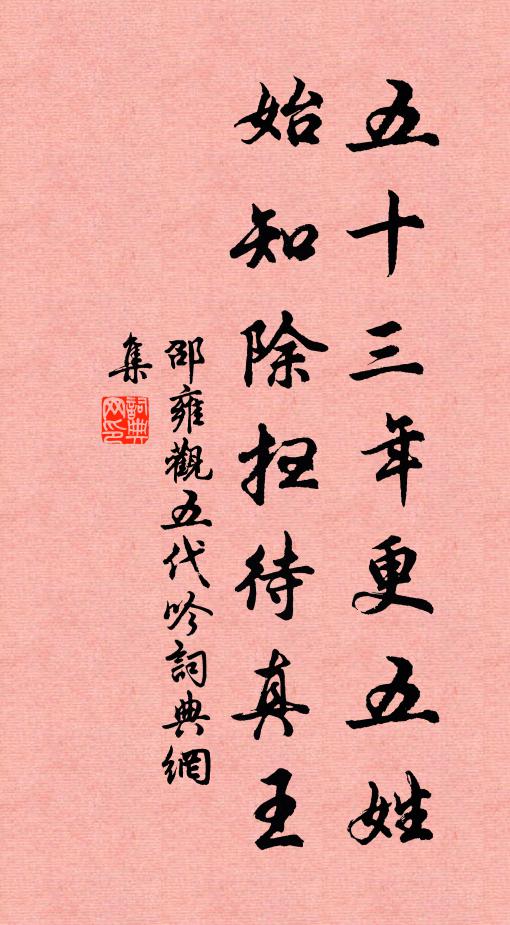 五十三年更五姓
始知除扫待真王
邵雍觀五代吟詞典網
集
詞典
网印